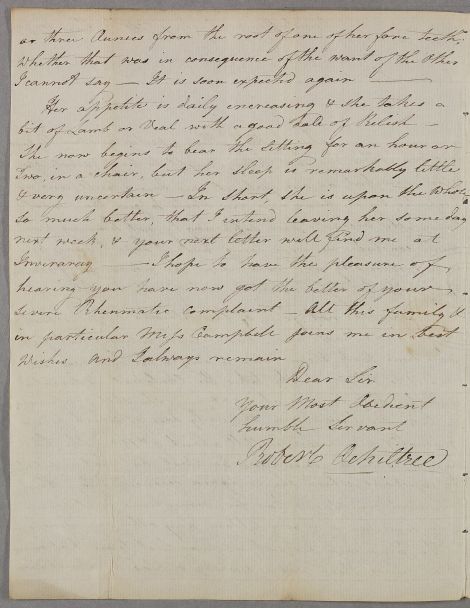 or three Ounces from the root of one of her fore teeth.
Whether that was in consequence of the want of the Other
I cannot say — It is soon expected again —
Her appetite is daily encreasing & she takes a
bit of Lamb or Veal with a good dale of Relish —
She now begins to bear the Sitting for an hour or
two, in a chair, but her Sleep is remarkably little
& very uncertain — In Short, she is upon the Whole
So much better, that I intend leaving her some day
next week, & your next letter will find me at
Inveraray — I hope to have the pleasure of
hearing you have now got the better of your
Severe Rheumatic complaint — All this family &
in particular Miss Campbell joins me in best
Wishes and I always remain
Dear Sir
Your Most Obedient
humble Servant
Robert Ochiltree